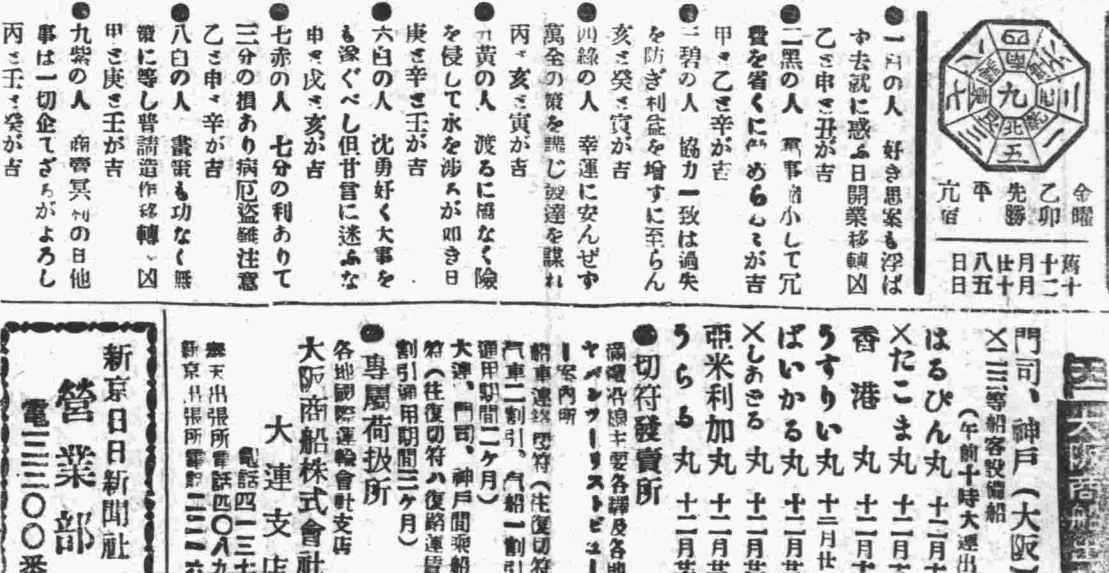 金曜
乙卯
先勝
平
亢宿
舊十
十二
月月
廿十
八五
日日
九
北
五
一
三
七
八
●一白の人 好き思案も浮ば
ず去就に惑ふ日開業移轉凶
乙と申と丑が吉
●二黒の人 萬事縮小して冗
費を省くに
が吉
甲と乙と辛が吉
●三碧の人 協力一致は過失
を防ぎ利益を増すに至らん
亥と癸と寅が吉
●四綠の人 幸運に安んぜず
萬全の策を講じ發達を謀れ
丙と亥と寅が吉
●五黃の人 渡るに橋なく險
を侵して水を涉るが如き日
庚と辛と壬が吉
●六白の人 沈勇好く大事を
も遂ぐべし但甘言に迷ふな
申と戌と亥が吉
●七赤の人 七分の利ありて
三分の損あり病厄盜難注意
乙と申と辛が吉
●八白の人 畫策も功なく無
策に等し普請造作移轉凶
甲と庚と壬が吉
●九紫の人 商賣冥利の日他
事は一切企てざるがよろし
丙と壬と癸が吉
大阪商船
門司、神戸(大阪)
×二三等船客設備船
(午前十時大連出
はるぴん丸 十二月
×たこま丸 十二月
香港丸 十二月
うすりい丸 十二月廿
ばいかる丸 十二月廿
×しあとる丸 十二月廿
亞米利加丸 十二月廿
うらる丸 十二月廿
●切符發賣所
滿鐵沿線主要各驛及各地
ヤパンツーリストビユー
ー案内所
船車連絡切符(往復切符
汽車二割引、汽船一割引
通用期間二ケ月)
大連、門司、神戸間乘船
符(往復切符ハ復路運賃
割引通用期間三ケ月)
●專屬荷扱所
各地國際運輸會社支店
大阪商船株式會社
大連支店
電話四一三七
奉天出張所電話四〇八九
新京出張所電話二二一六
新京日日新聞社
營業部
電三三〇〇番